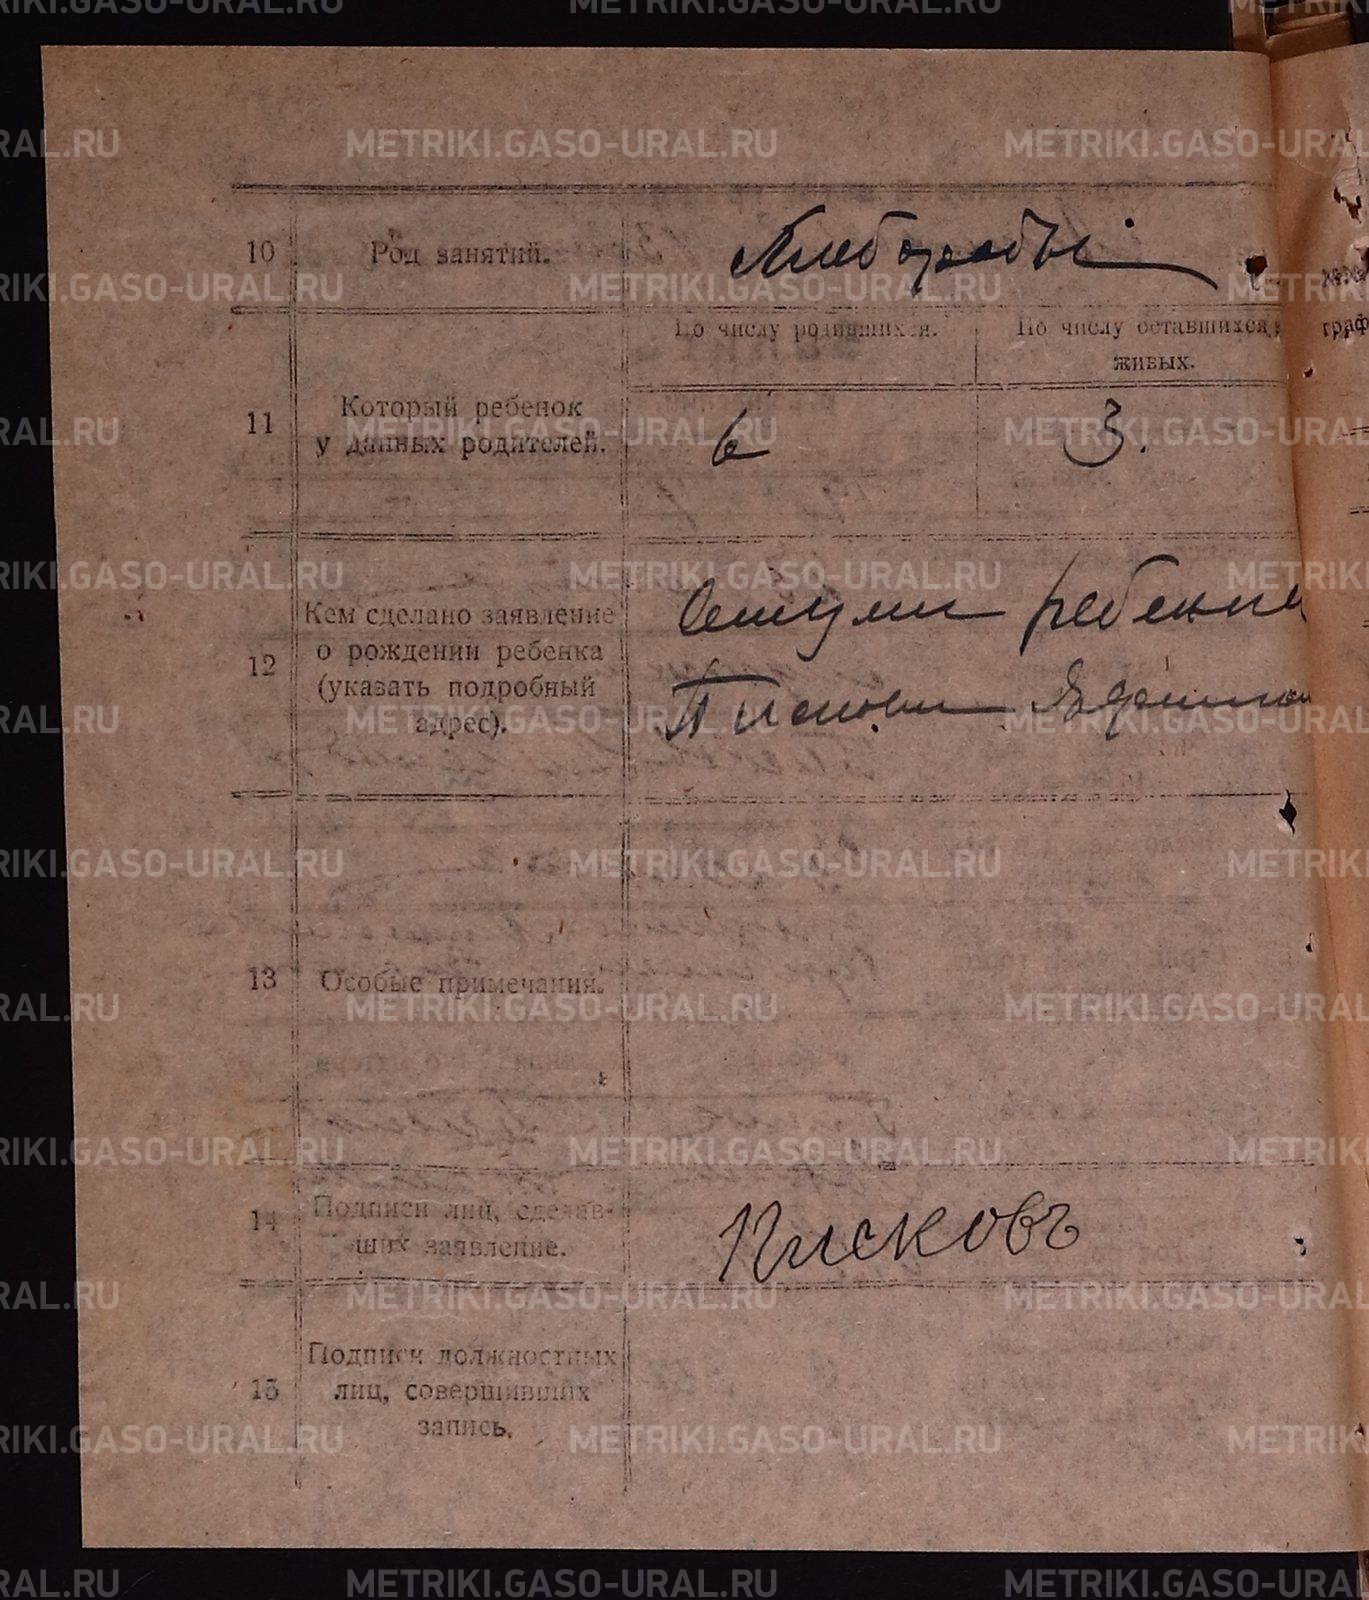 METRIKI.GASO-URAL.RU
10 Род занятий. Хлеборобы.
11 Который ребенок
у данных родителей.
По числу родившихся.
По числу оставшихся
живых.
6
3.
12 Кем сделано заявление
о рождении ребенка
(указать подробный
адрес).
Отцом ребенка
Писковым
13 Особые примечания.
14 Подписи лиц, сделав-
ших заявление.
Писковъ
15 Подписи должностных
лиц, совершивших
запись.
граф